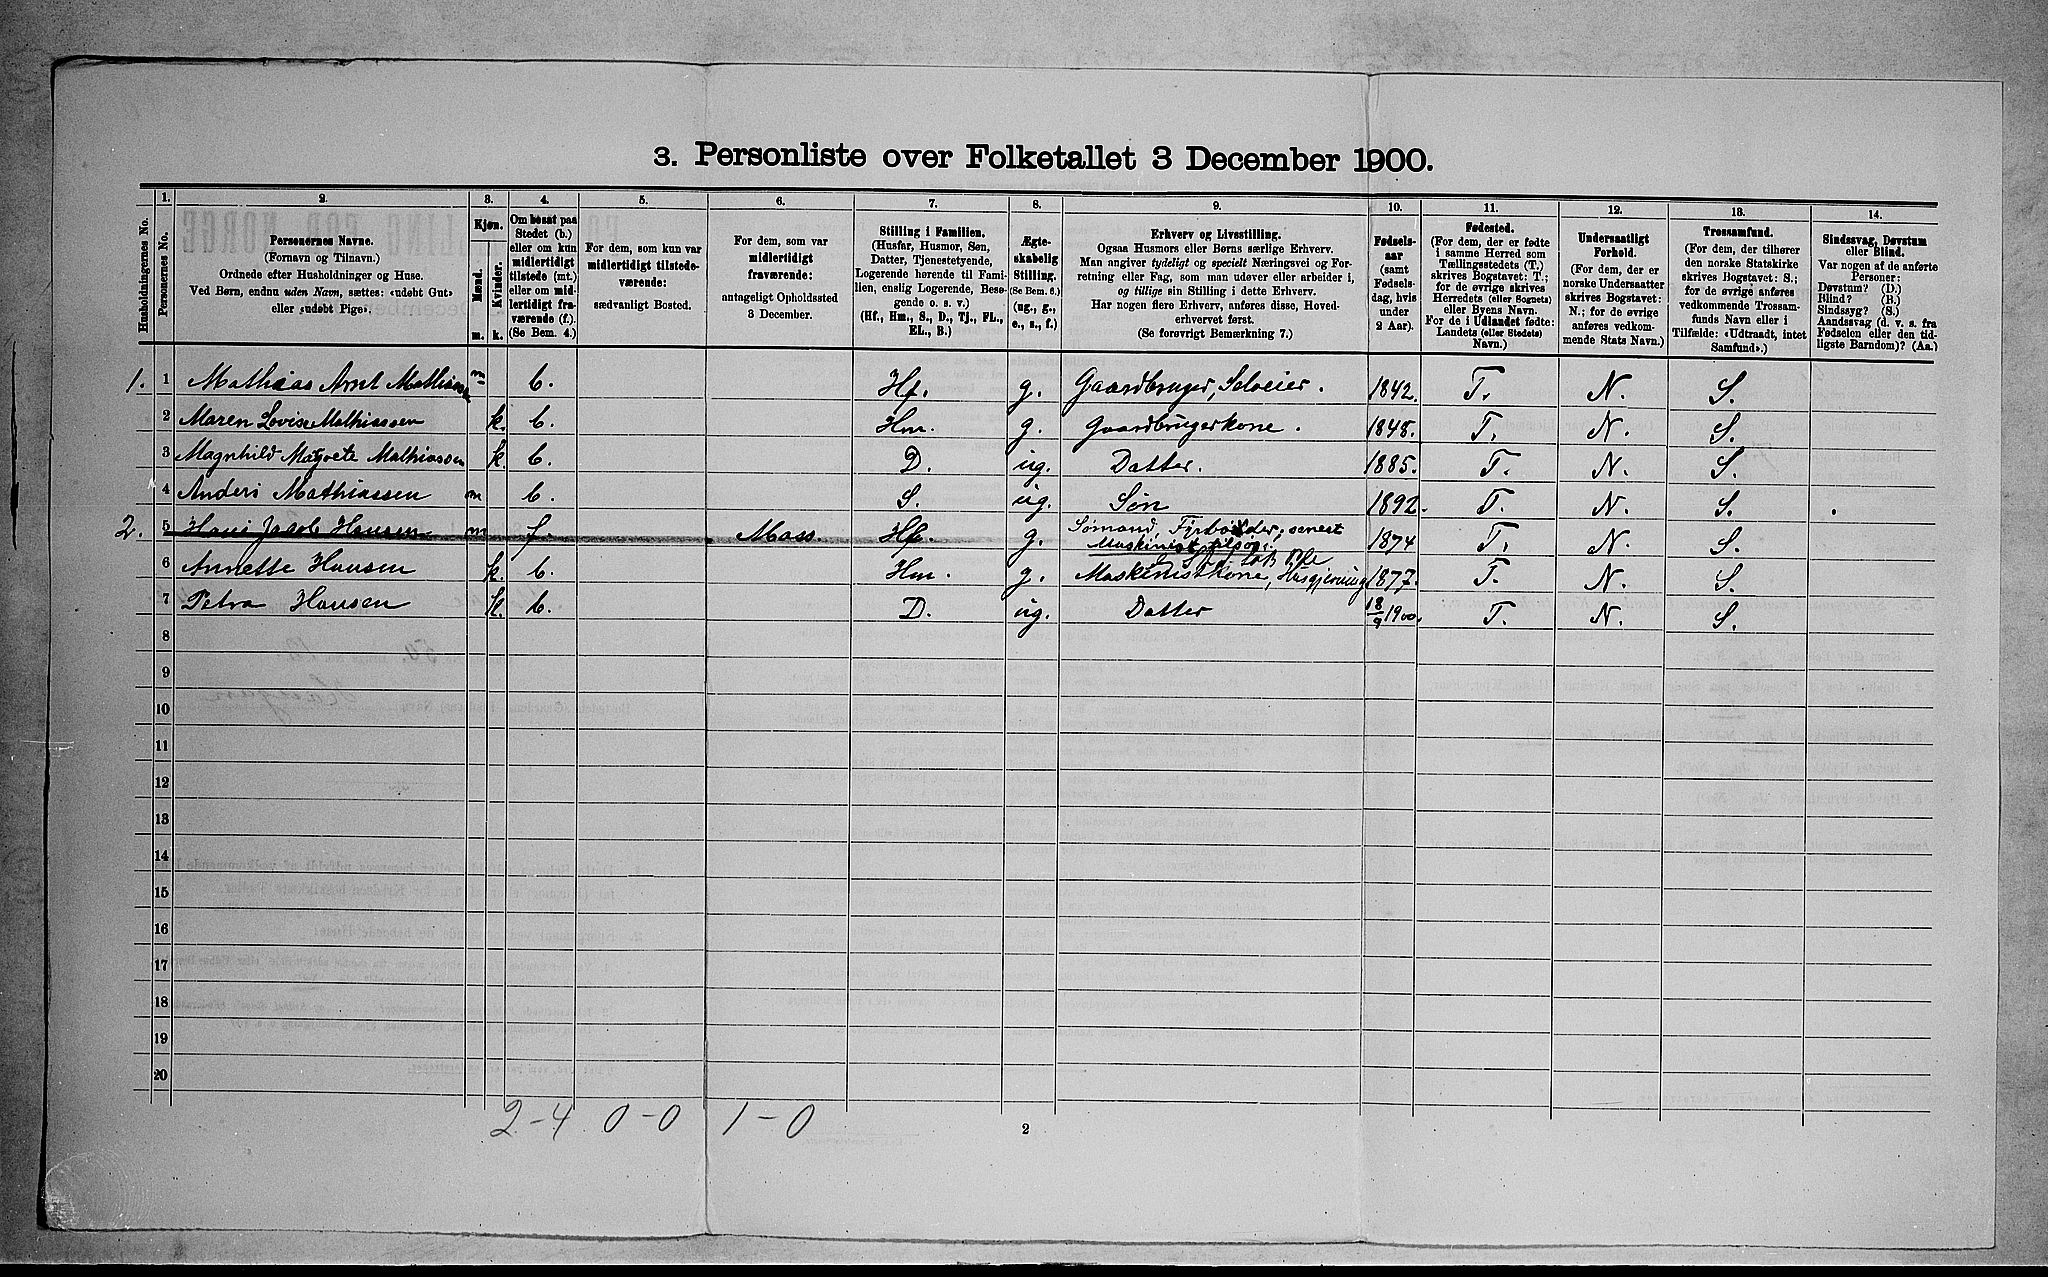 3. Personliste over Folketallet 3 December 1900.
1. 2. 3. 4. 5. 6. 7. 8. 9. 10. 11. 12. 13. 14.
Husholdningernes No.
Personernes No.
Personernes Navne.
(Fornavn og Tilnavn.)
Ordnede efter Husholdninger og Huse.
Ved Børn, endnu uden Navn, sættes: «udøbt Gut»
eller «udøbt Pige».
Kjøn.
Mænd.
Kvinder.
m. k.
Om bosat paa
Stedet (b.)
eller om kun
midlertidigt
tilstede (mt.)
eller om mid-
lertidigt fra-
værende (f.)
(Se Bem. 4.)
For dem, som kun var
midlertidigt tilstede-
værende:
sædvanligt Bosted.
For dem, som var
midlertidigt
fraværende:
antageligt Opholdssted
3 December.
Stilling i Familien.
(Husfar, Husmor, Søn,
Datter, Tjenestetyende,
Logerende hørende til Fami-
lien, enslig Logerende, Besø-
gende o. s. v.)
(Hf., Hm., S., D., Tj., FL.,
EL., B.)
Ægte-
skabelig
Stilling.
(Se Bem. 6.)
(ug., g.,
e., s., f.)
Erhverv og Livsstilling.
Ogsaa Husmors eller Børns særlige Erhverv.
Man angiver tydeligt og specielt Næringsvei og For-
retning eller Fag, som man udøver eller arbeider i,
og tillige sin Stilling i dette Erhverv.
Har nogen flere Erhverv, anføres disse, Hoved-
erhvervet først.
(Se forøvrigt Bemærkning 7.)
Fødsels-
aar
(samt
Fødsels-
dag, hvis
under
2 Aar).
Fødested.
(For dem, der er fødte
i samme Herred som
Tællingsstedets (T.)
skrives Bogstavet: T.;
for de øvrige skrives
Herredets (eller Sognets)
eller Byens Navn.
For de i Udlandet fødte:
Landets (eller Stedets)
Navn.)
Undersaatligt
Forhold.
(For dem, der er
norske Undersaatter
skrives Bogstavet:
N.; for de øvrige
anføres vedkom-
mende Stats Navn.)
Trossamfund.
(For dem, der tilhører
den norske Statskirke
skrives Bogstavet: S.;
for de øvrige anføres
vedkommende Trossam-
funds Navn eller i
Tilfælde: «Udtraadt, intet
Samfund».)
Sindssvag, Døvstum
eller Blind.
Var nogen af de anførte
Personer:
Døvstum? (D.)
Blind? (B.)
Sindssyg? (S.)
Aandssvag (d. v. s. fra
Fødselen eller den tid-
ligste Barndom)? (Aa.)
1. 1 Mathias Arnt Mathiassen m b. Hf. g. Gaardbruger, Selveier. 1842. T. N. S.
2 Maren Lovise Mathiassen k. b. Hm. g. Gaardbrugerkone. 1848. T. N. S.
3 Magnhild Magrete Mathiassen k. b. D. ug. Datter. 1885. T. N. S.
4 Anders Mathiassen m b. S. ug. Søn 1892. T. N. S.
2. 5 Hans Jacob Hansen m f. Moss. Hf. g. Sømand, Fyrbøder, senest
Maskinist tilsøs. 1874 T. N. S.
6 Annette Hansen k. b. Hm. g. Maskinistkone, Husgjerning 1877. T. N. S.
7 Petra Hansen k. b. D. ug. Datter 18/9 1900. T. N. S.
8
9
10
11
12
13
14
15
16
17
18
19
20
2-4 0-0 1-0
2